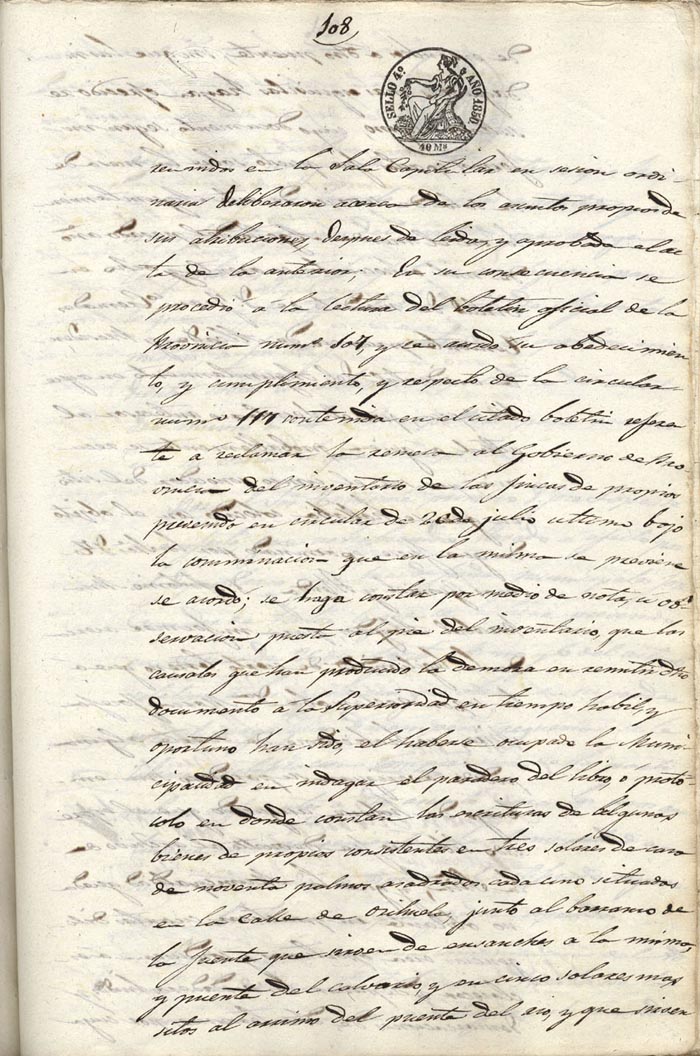 108
SELLO 4º AÑO 1850.
40 Ms
reunidos en la Sala Capitular en sesion ordi-
naria deliberaron acerca de los asuntos propios de
sus atribuciones, despues de leida, y aprobada el ac-
ta de la anterior; En su consecuencia se
procedió á la lectura del boletin oficial de la
Provincia numº 107, y se acordo su obedecimien-
to, y cumplimiento, y respecto de la circular
numº 117 contenida en el citado boletin referen-
te á reclamar la remesa al Gobierno de Pro-
vincia del inventario de las fincas de propios
prevenido en circular de 20 de julio ultimo bajo
la conminacion que en la misma se previene
se acordó; se haga constar por medio de nota, u ob-
servacion puesta al pie del inventario, que las
causales que han producido la demora en remitir dho
documento a la Superioridad en tiempo habil y
oportuno han sido, el haberse ocupado la Muni-
cipalidad en indagar el paradero del libro, ó proto-
colo en donde constan las escrituras de algunos
bienes de propios consistentes en tres solares de casa
de noventa palmos cuadrados cada uno situados
en la calle de Orihuela, junto al barranco de
la fuente que sirven de ensanches a la misma,
y puente del calvario, y en cinco solares mas
sitos al arrimo del puente del rio, y que sirven